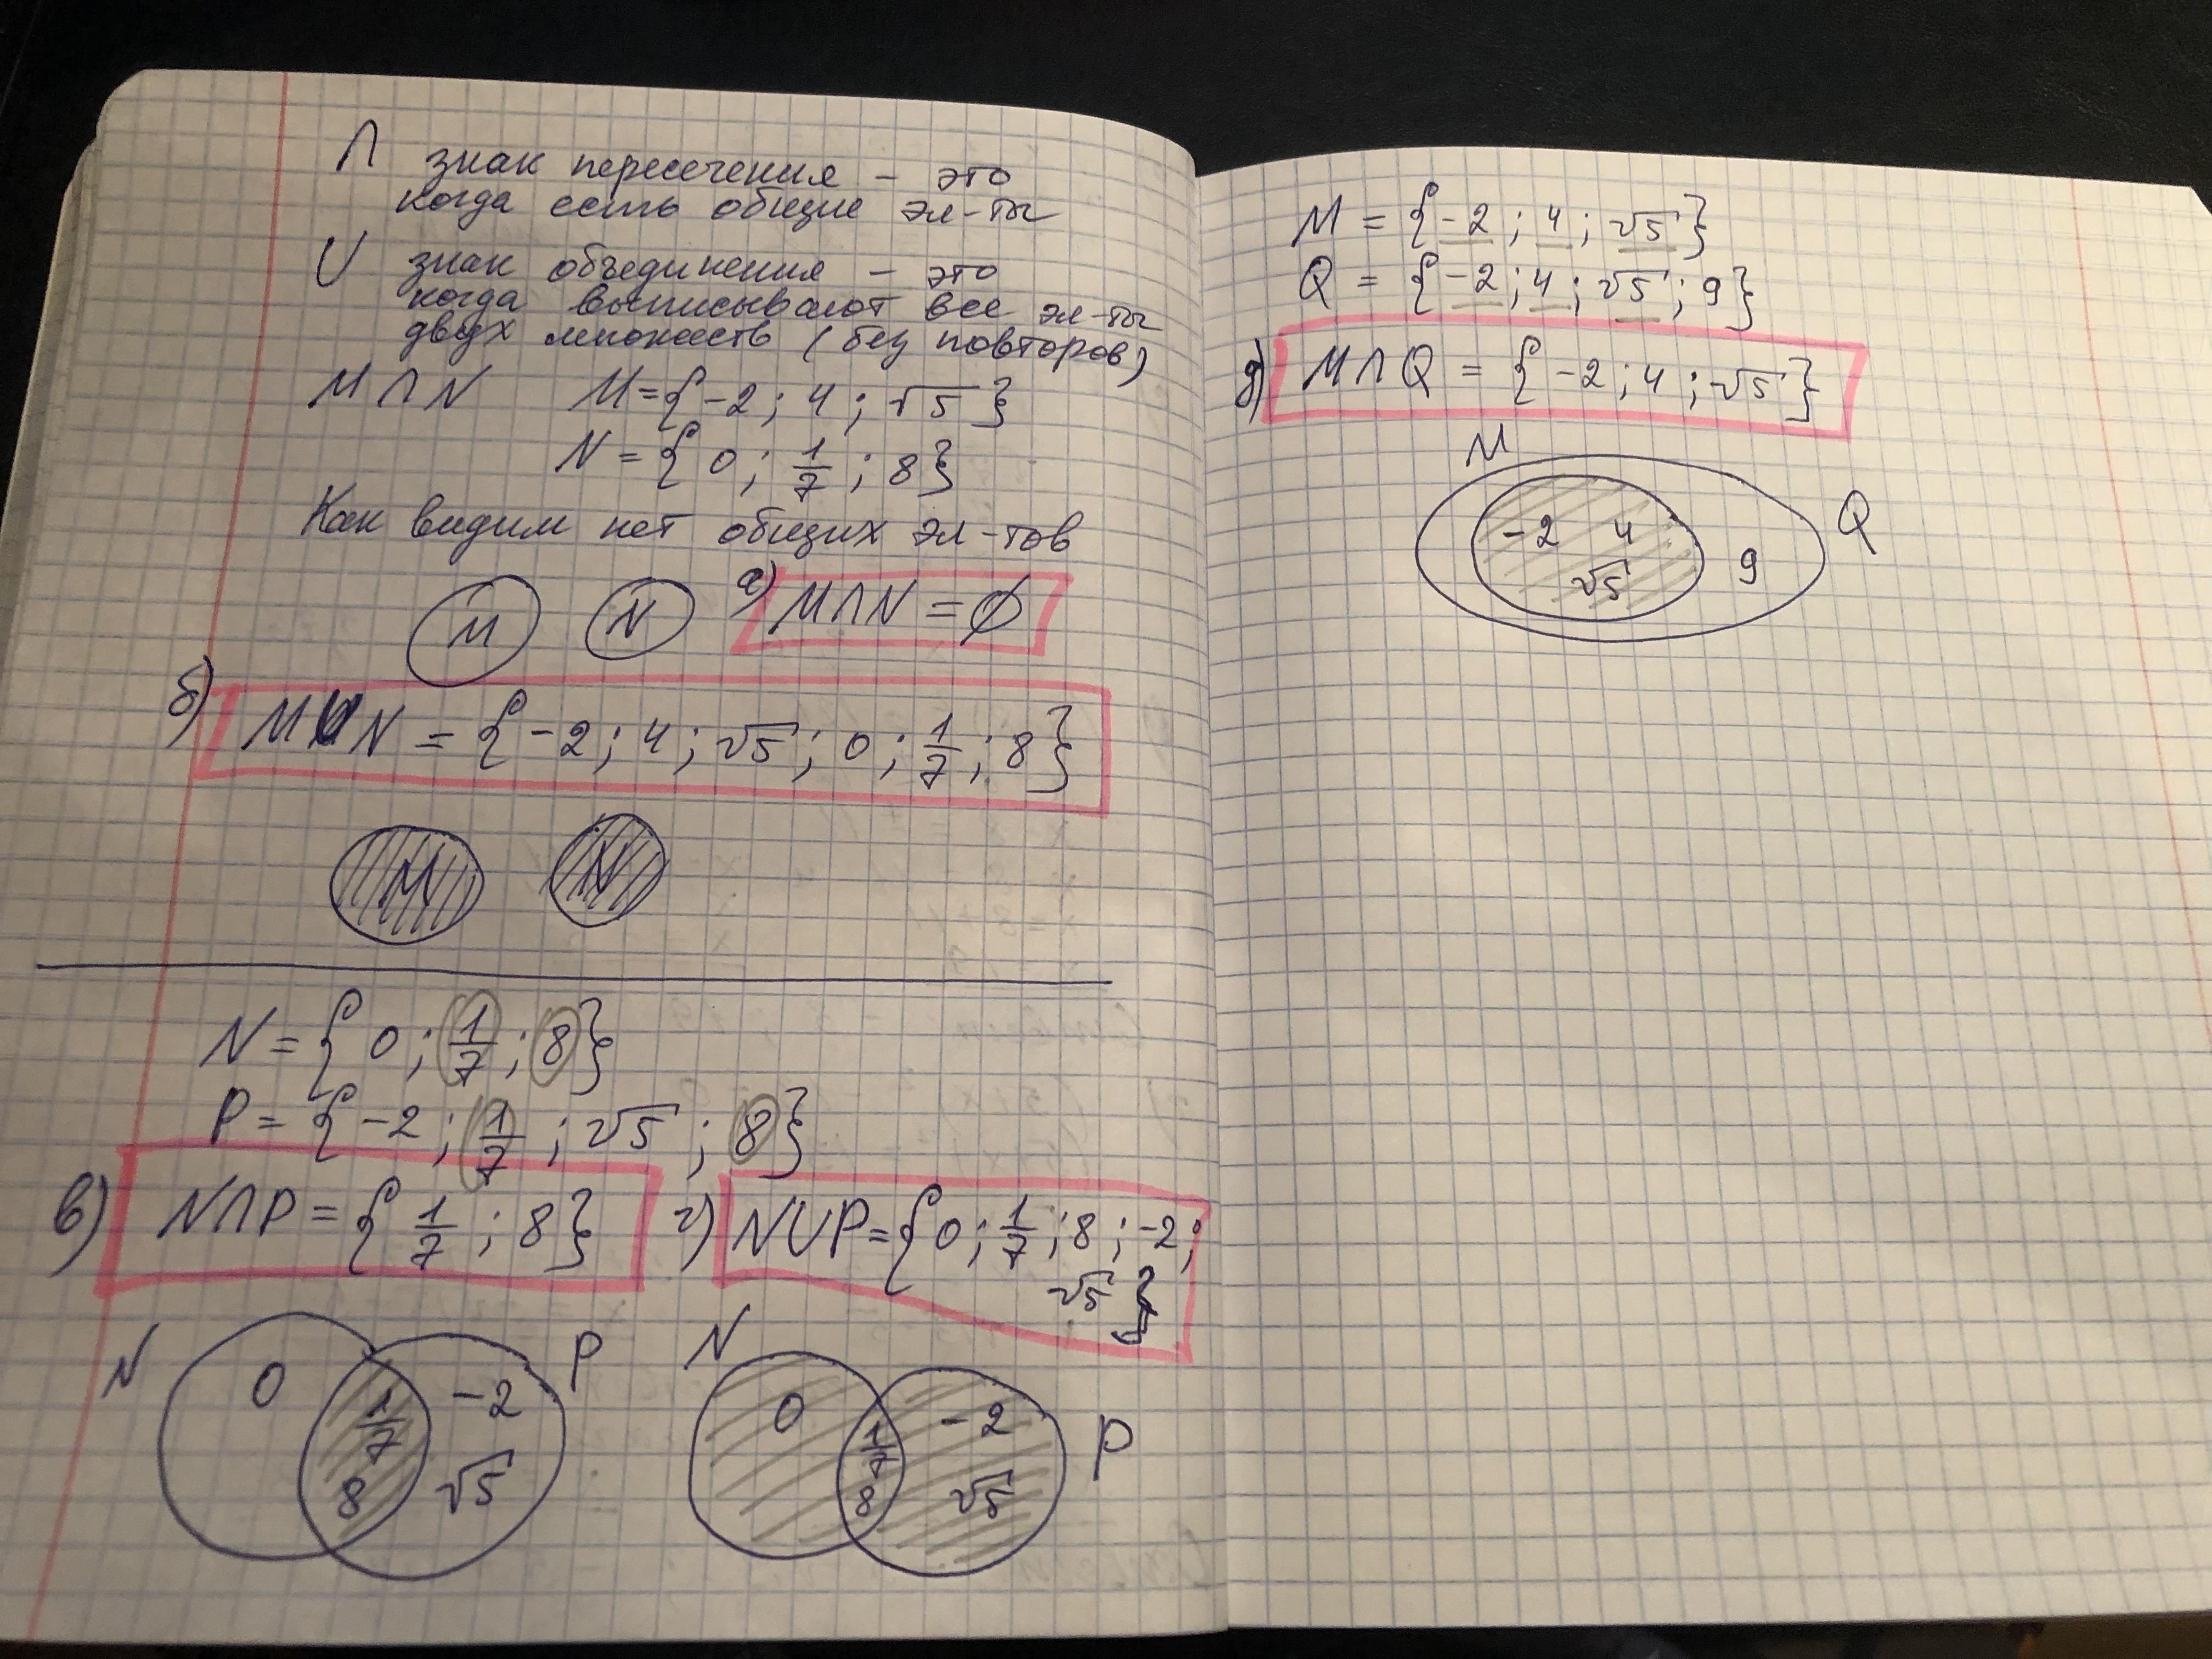 ∩ знак пересечения – это
когда есть общие эл-ты
∪ знак объединения – это
когда выписывают все эл-ты
двух множеств (без повторов)
M∩N M={-2; 4; √5}
N={0; 1/7; 8}
Как видим нет общих эл-тов
M N а) M∩N=∅
б) M∪N={-2; 4; √5; 0; 1/7; 8}
M N
N={0; 1/7; 8}
P={-2; 1/7; √5; 8}
в) N∩P={1/7; 8} г) N∪P={0; 1/7; 8; -2;
√5}
N 0 1/7 -2 P
8 √5
N 0 1/7 -2 P
8 √5
M={-2; 4; √5}
Q={-2; 4; √5; 9}
д) M∩Q={-2; 4; √5}
M
-2 4 9 Q
√5